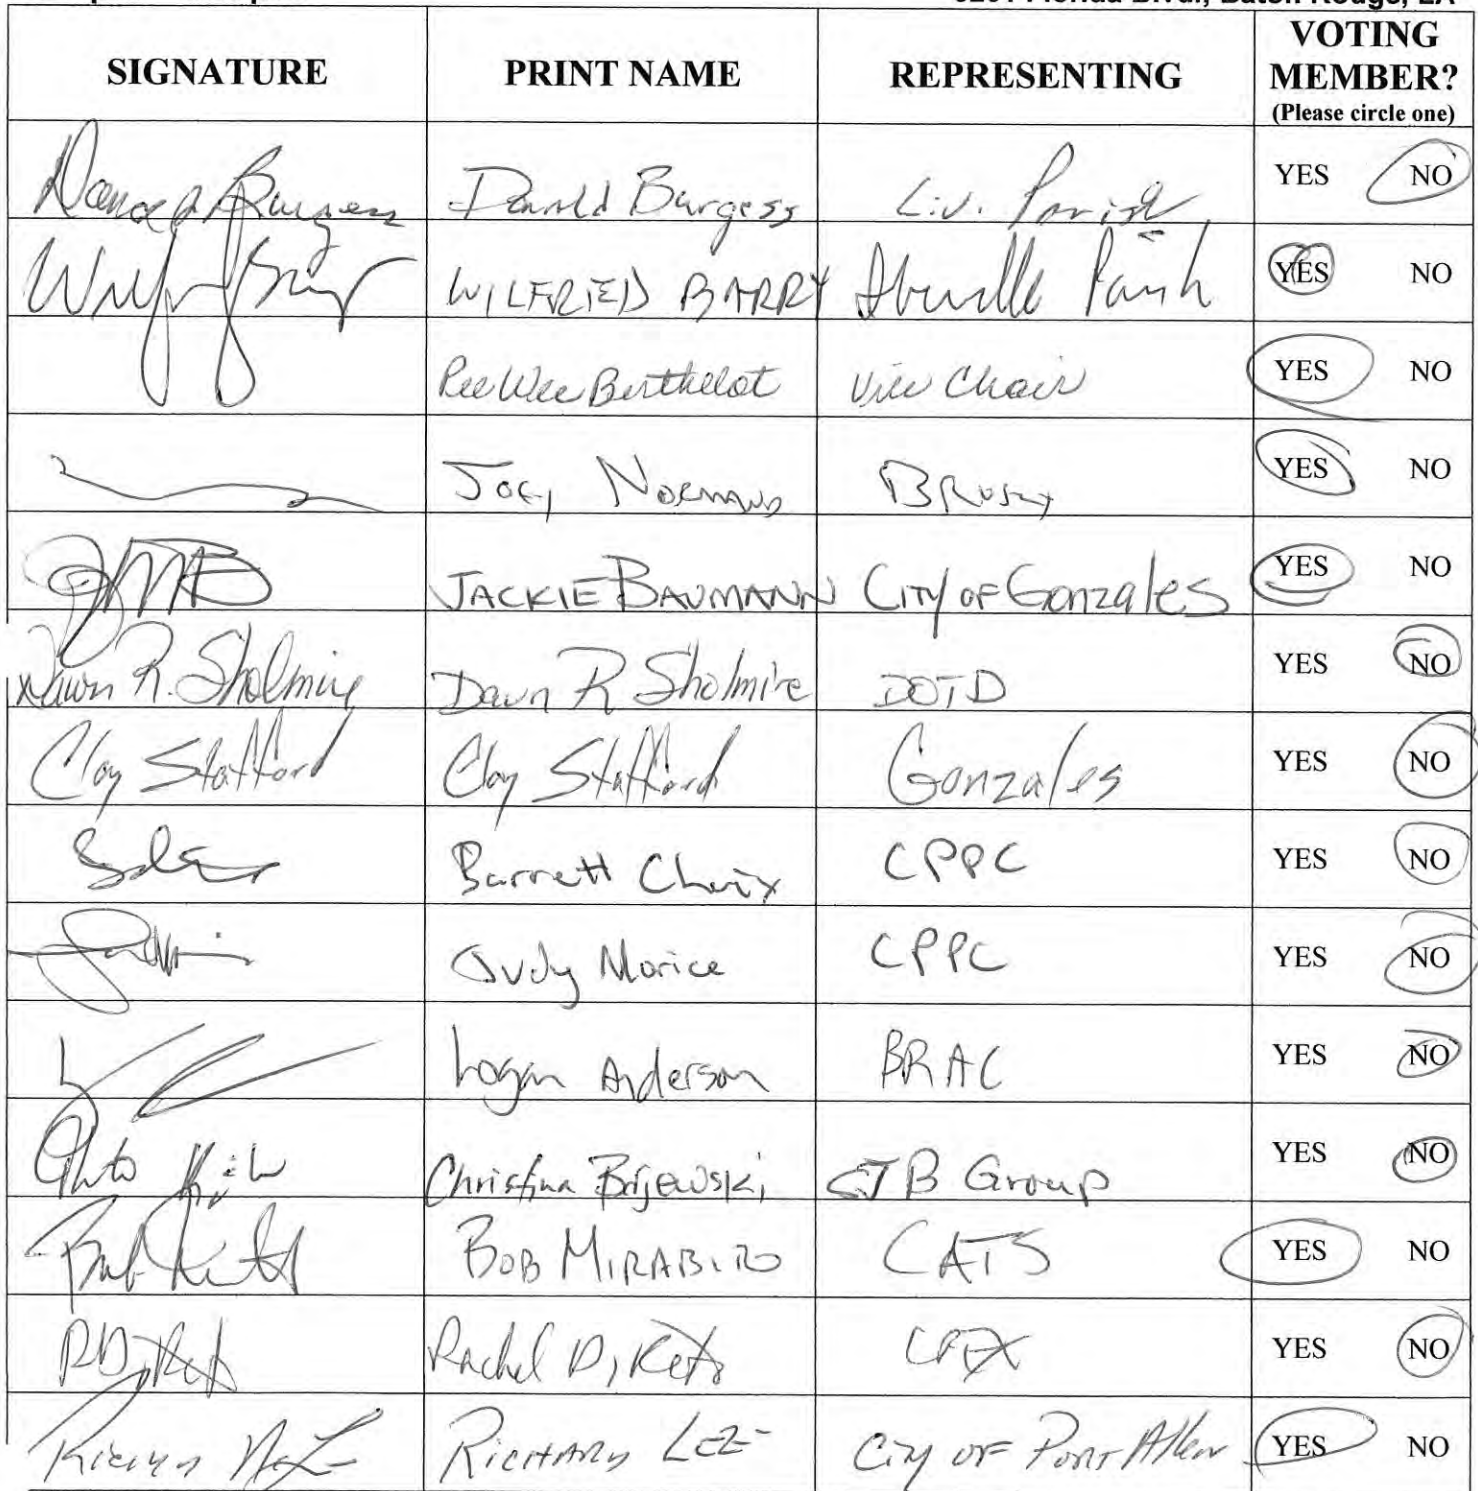 Florida Blvd., Baton Rouge, LA
SIGNATURE PRINT NAME REPRESENTING VOTING MEMBER? (Please circle one)
Donald Burgess Donald Burgess Liv. Parish YES NO
WILFRIED BARRY Iberville Parish YES NO
Pee Wee Berthelot Vice Chair YES NO
Joey Normand Brusly YES NO
JACKIE BAUMANN CITY OF Gonzales YES NO
Dawn R. Sholmire Dawn R Sholmire DOTD YES NO
Clay Stafford Clay Stafford Gonzales YES NO
Barrett CPPC YES NO
Judy Morice CPPC YES NO
Logan Anderson BRAC YES NO
Christina Brijewski CJB Group YES NO
BOB MIRABITO CATS YES NO
Rachel CPEX YES NO
RICHARD LEE City OF PORT Allen YES NO